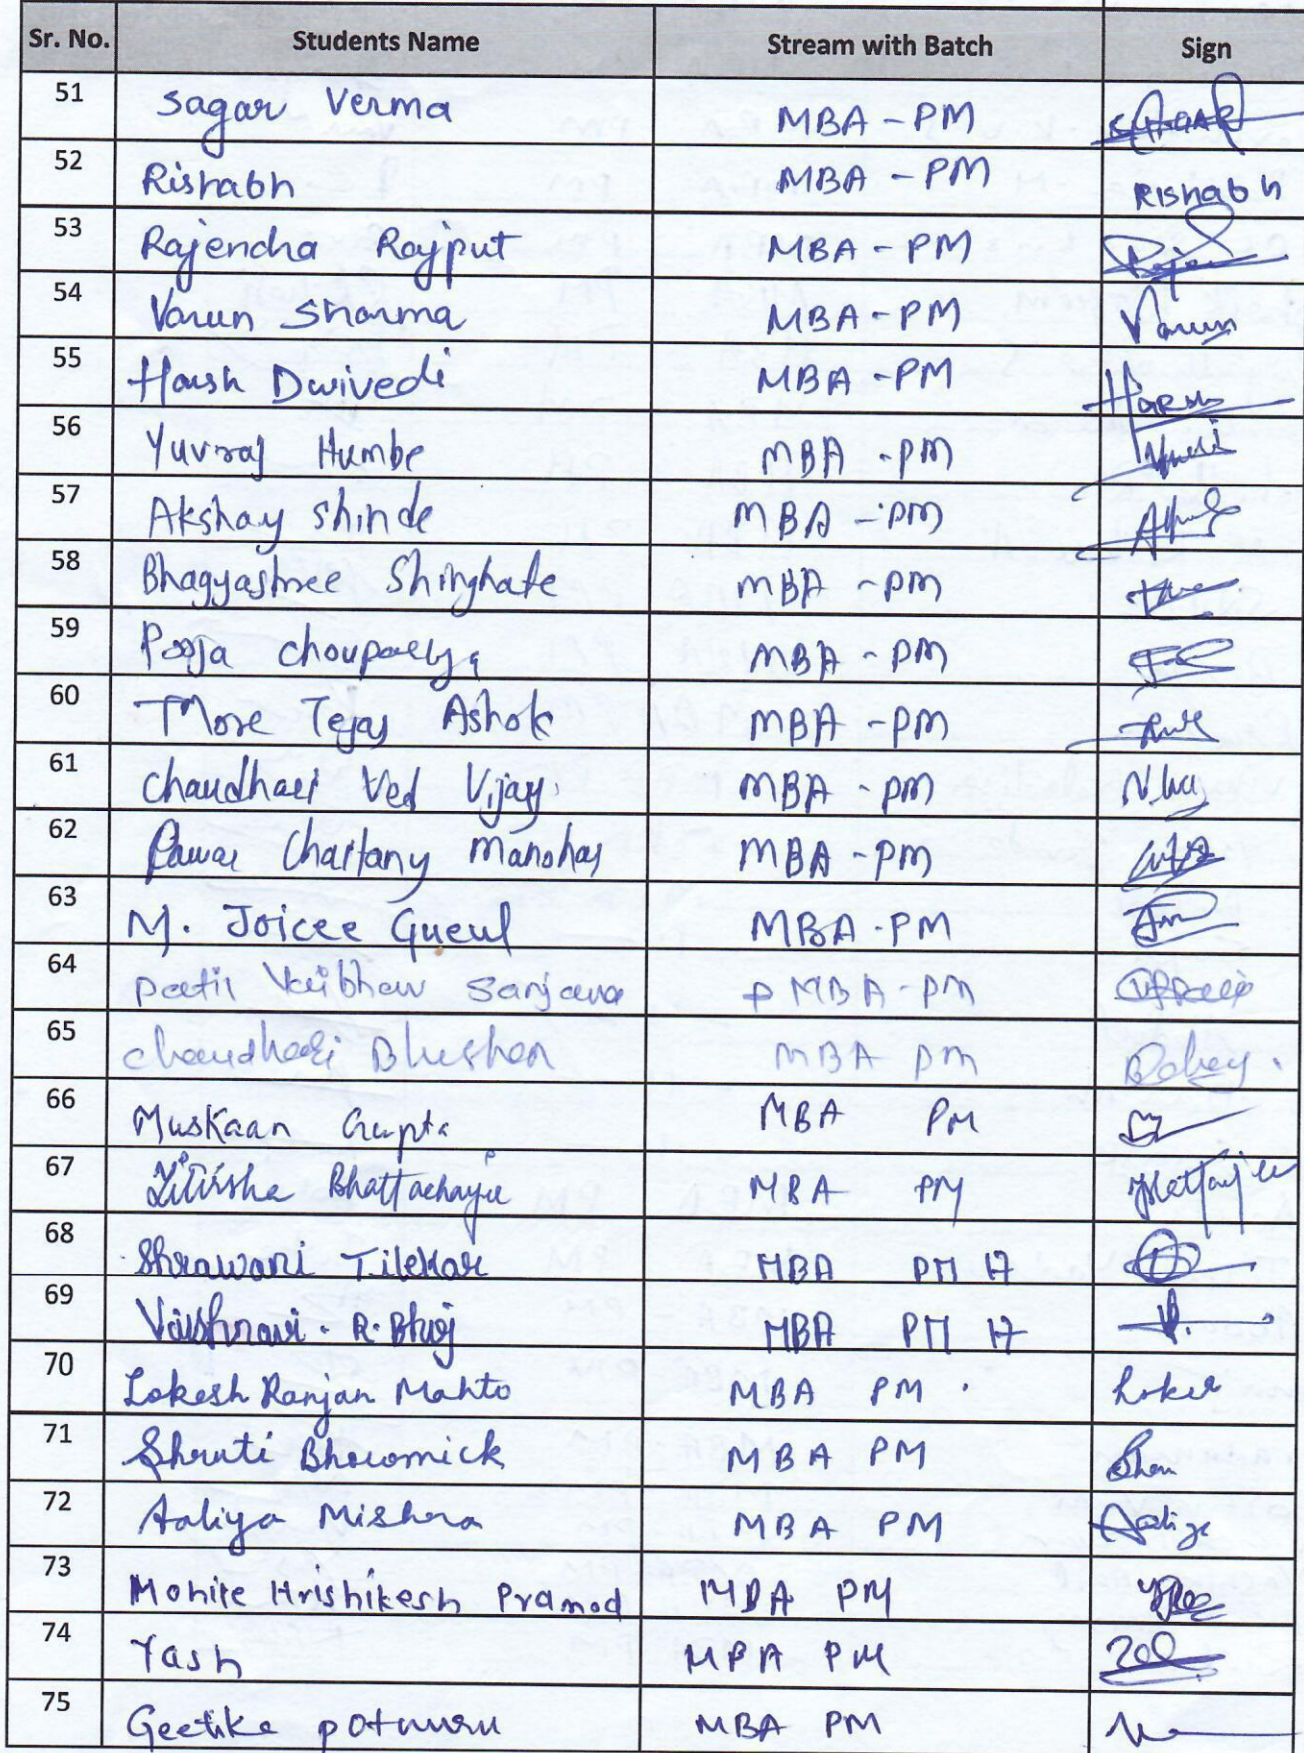 Sr. No. Students Name Stream with Batch Sign
51 Sagar Verma MBA - PM SAGAR
52 Rishabh MBA - PM Rishabh
53 Rajendra Rajput MBA - PM
54 Varun Sharma MBA - PM Varun
55 Harsh Dwivedi MBA - PM Harsh
56 Yuvraj Humbe MBA - PM
57 Akshay Shinde MBA - PM
58 Bhagyashree Shinghate MBA - PM
59 Pooja MBA - PM
60 More Tejas Ashok MBA - PM
61 Chaudhari Ved Vijay MBA - PM
62 Pawar Chaitany Manohar MBA - PM
63 M. Joicee MBA - PM
64 Patil Vaibhav MBA - PM
65 Chaudhari Bhushan MBA PM
66 Muskaan Gupta MBA PM
67 Bhattacharjee MBA PM
68 Shrawani Tilekar MBA PM 17
69 Vaishnavi . R. Bhoj MBA PM 17
70 Lokesh Ranjan Mahto MBA PM
71 Shruti Bhowmick MBA PM
72 Aaliya Mishra MBA PM Aaliya
73 Mohite Hrishikesh Pramod MBA PM
74 Yash MBA PM
75 Geetika MBA PM